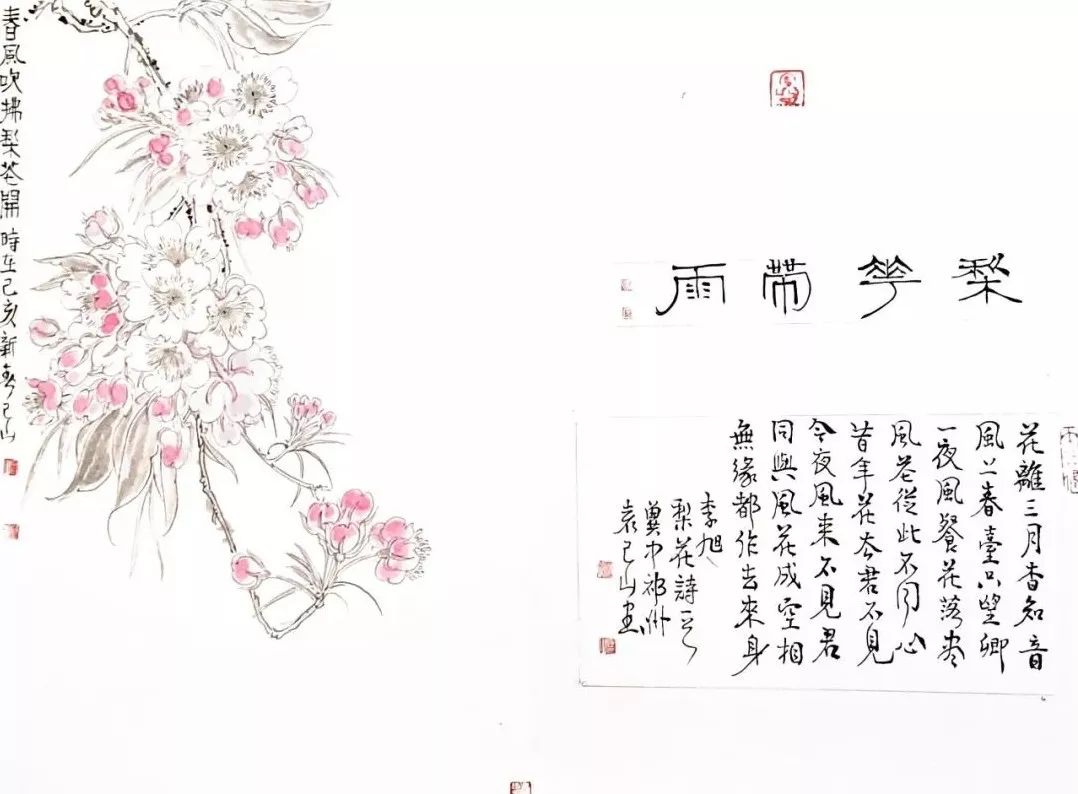 梨華帶雨
花離三月杳知音
風上春臺只望卿
一夜風餐花落盡
風花從此不同心
昔年花在君不見
今夜風來不見君
同與風花成空相
無緣都作去來身
李旭
梨花詩
冀中祁州
袁己山書
春風吹拂梨花開 時在己亥新春己山